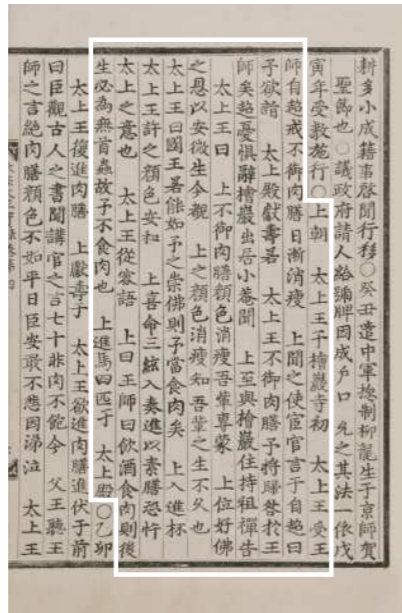 耕多小成籍事啓聞行移○癸丑遣中軍摠制柳龍生于京師賀
聖節也○議政府請人給號牌因成戶口 允之其法一依戊
寅年受敎施行○上朝 太上王于檜巖寺初 太上王受王
師自超戒不御肉膳日漸消瘦 上聞之使宦官言于自超曰
予欲詣 太上殿獻壽若 太上王不御肉膳予將歸咎於王
師矣超憂懼辭檜巖出居小菴聞 上至與檜巖住持祖禪告
太上王曰 上不御肉膳顔色消瘦吾輩專蒙 上位好佛
之恩以安微生今觀 上之顔色消瘦知吾輩之生不久也
太上王曰國王若能如予之崇佛則予當食肉矣 上入進杯
太上王許之顔色安和 上喜命三絃入奏進以素膳恐忤
太上之意也 太上王從容語 上曰王師曰飮酒食肉則後
生必為無首蟲故予不食肉也 上進馬四匹于 太上殿○乙卯
太上王復進肉膳 上獻壽于 太上王欲進肉膳進伏于前
曰臣觀古人之書聞講官之言七十非肉不飽今 父王聽王
師之言絶肉膳顔色不如平日臣安敢不悲因涕泣 太上王